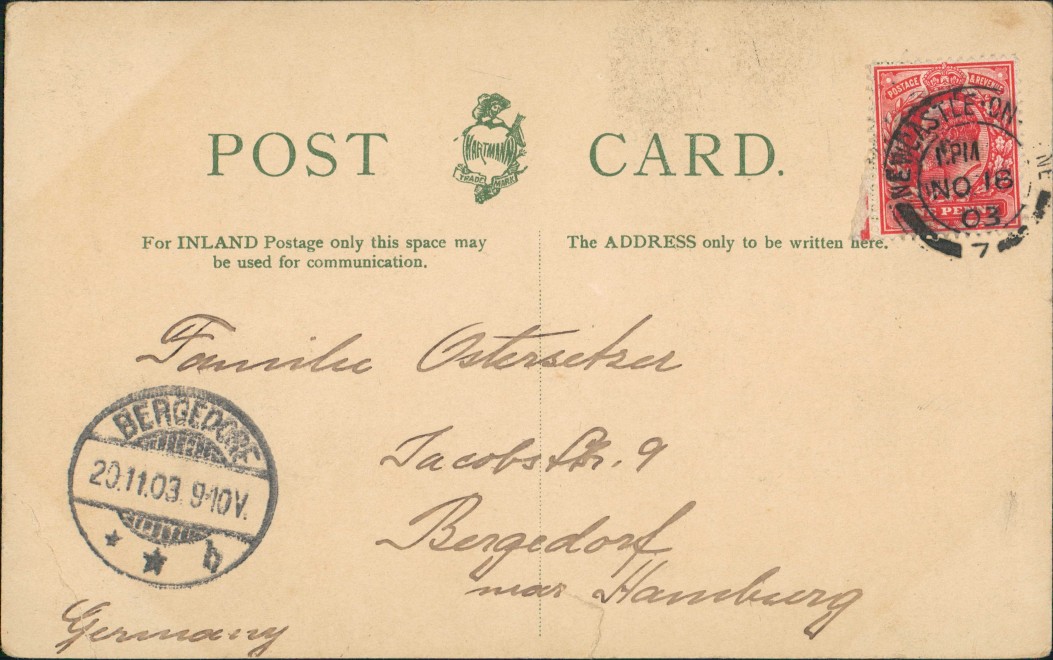 POST CARD.
HARTMANN
TRADE MARK
POSTAGE & REVENUE
PENNY
NEWCASTLE-ON-
NO 18
03
7
NE
For INLAND Postage only this space may
be used for communication.
The ADDRESS only to be written here.
Familie Ostersetzer
Jacobs Str. 9
Bergedorf
near Hamburg
Germany
BERGEDORF
20.11.03. 9-10V.
* * b